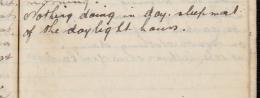 Nothing doing in day. sleep most
of the daylight hours.